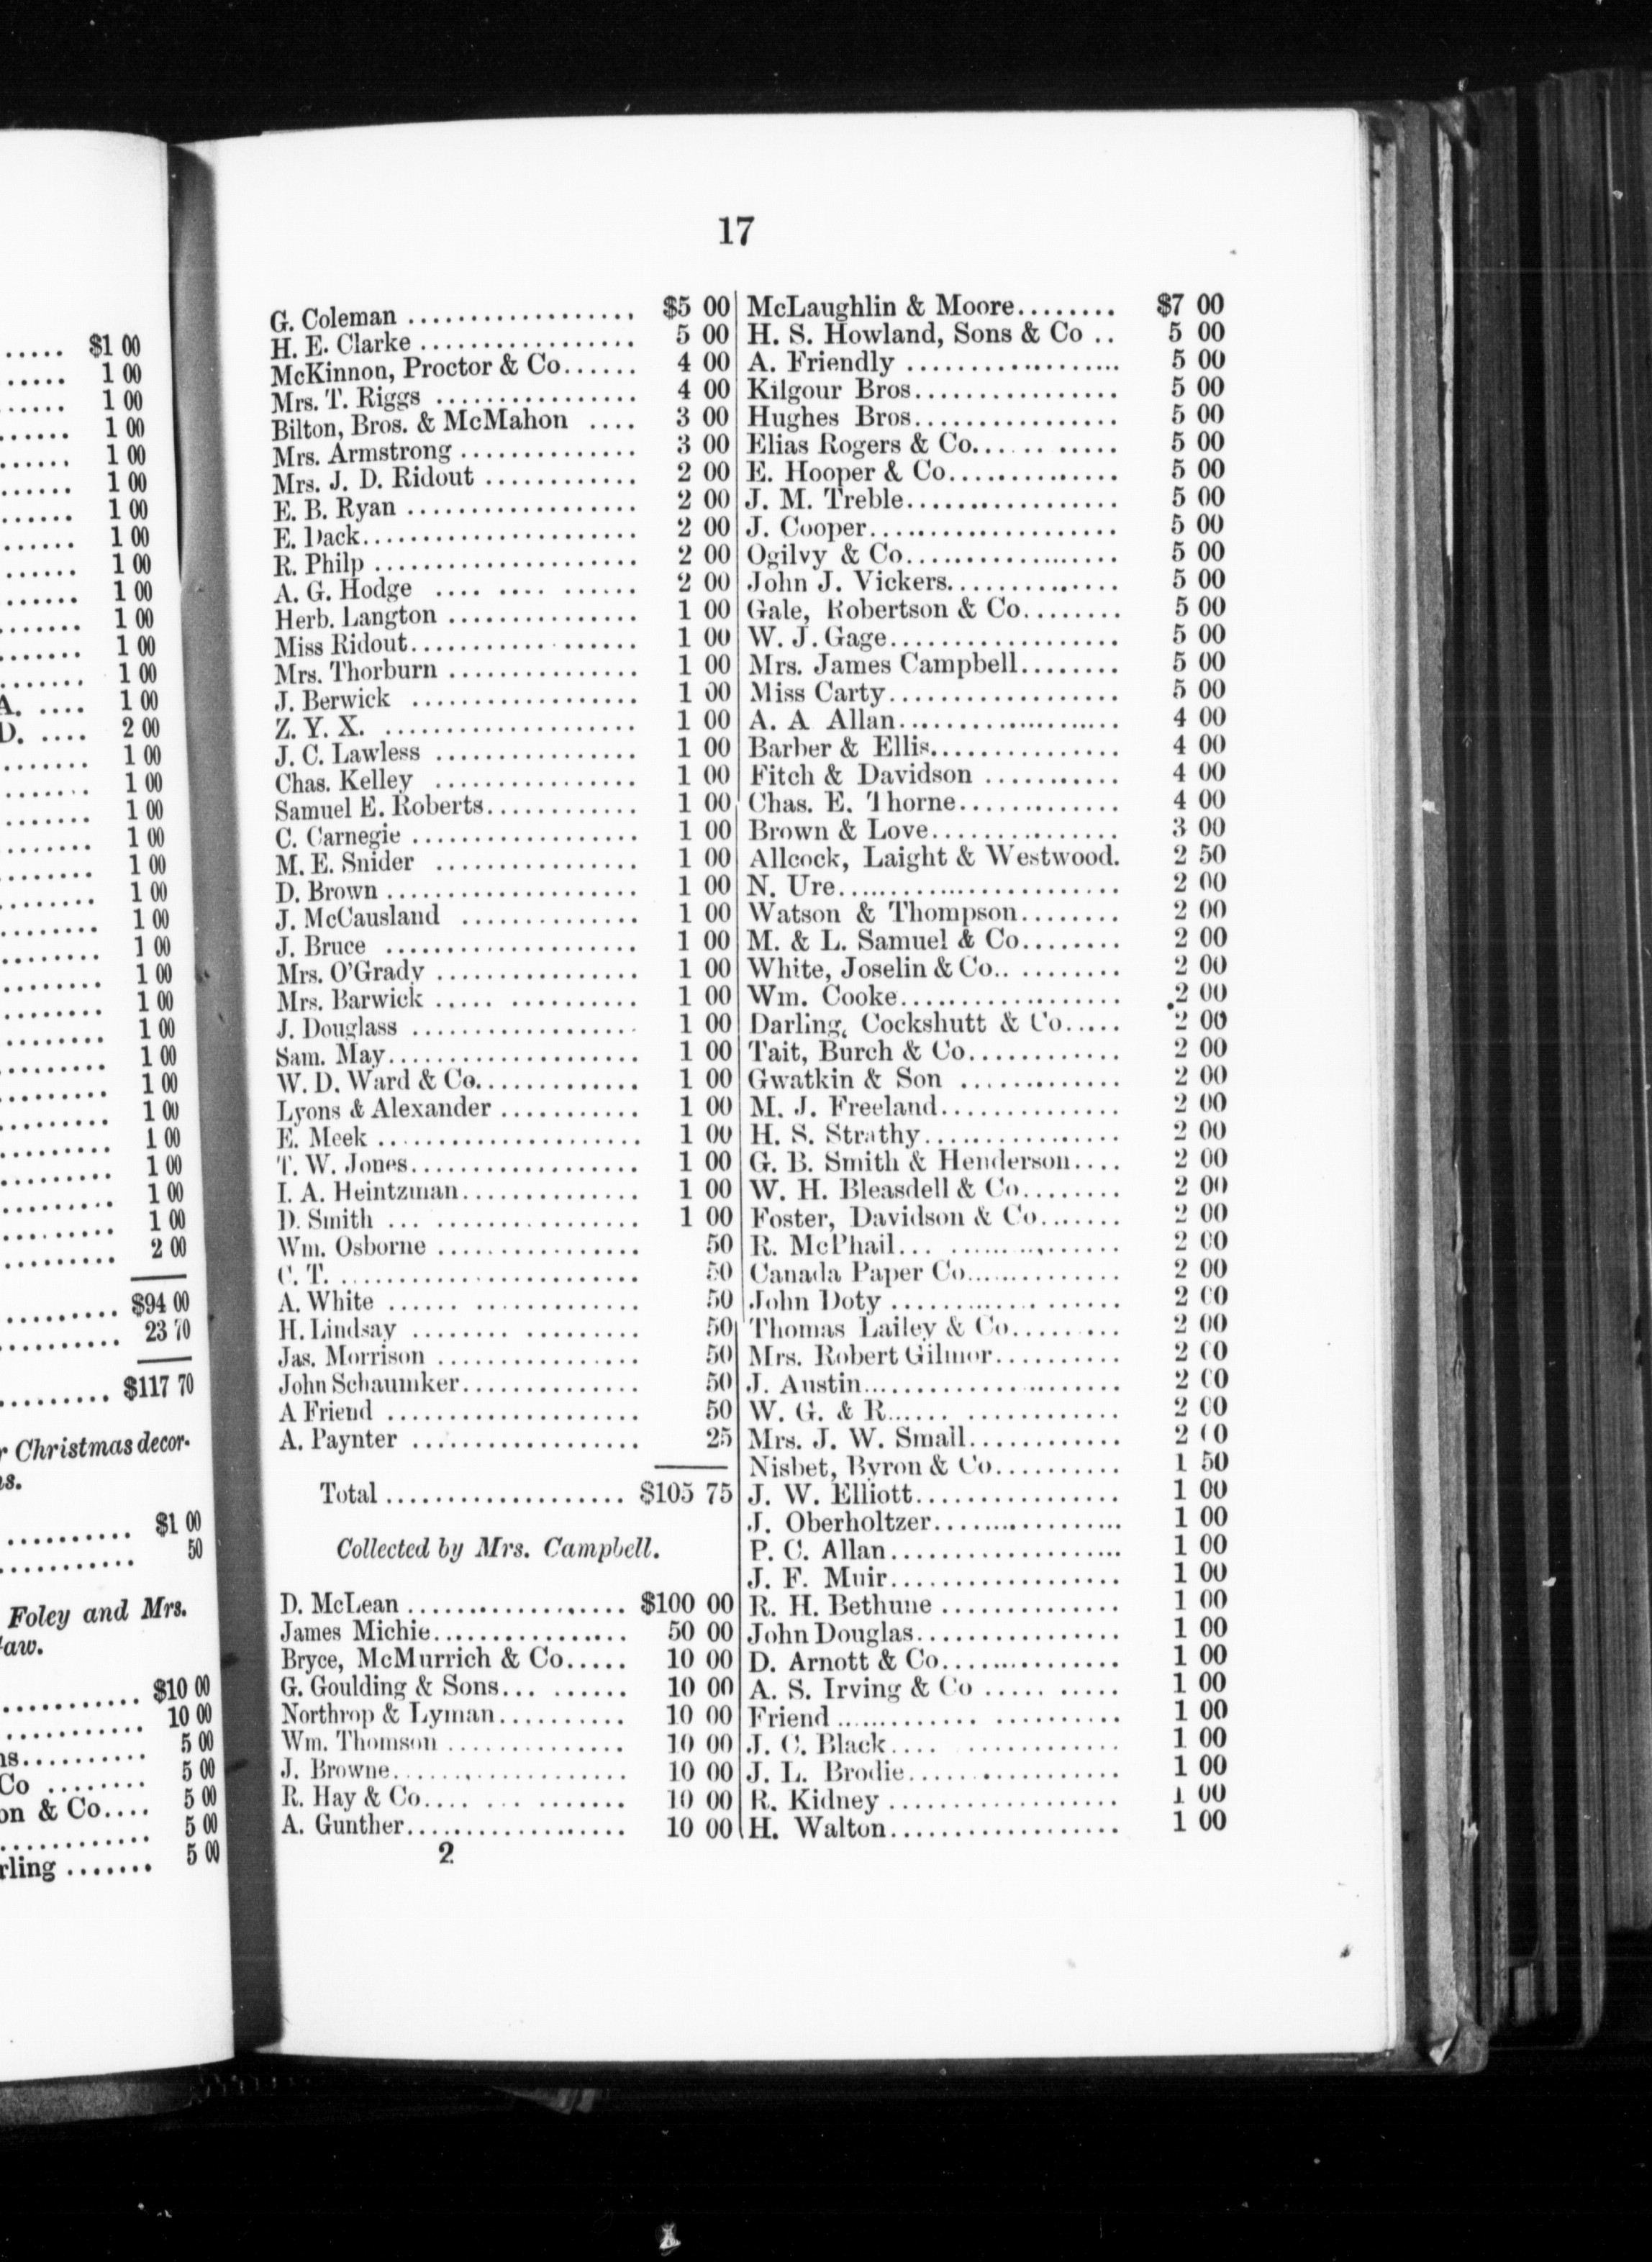 ..... $1 00
..... 1 00
..... 1 00
...... 1 00
...... 1 00
...... 1 00
...... 1 00
...... 1 00
...... 1 00
...... 1 00
...... 1 00
...... 1 00
....... 1 00
A. .... 1 00
D. .... 2 00
....... 1 00
....... 1 00
....... 1 00
........ 1 00
........ 1 00
........ 1 00
........ 1 00
........ 1 00
........ 1 00
......... 1 00
......... 1 00
......... 1 00
......... 1 00
......... 1 00
......... 1 00
......... 1 00
......... 1 00
......... 1 00
......... 2 00
.......... $94 00
.......... 23 70
......... $117 70
Christmas decor-
........... $1 00
........... 50
Foley and Mrs.
............ $10 00
............ 10 00
.......... 5 00
Co ........ 5 00
& Co.... 5 00
............ 5 00
....... 5 00
17
G. Coleman .................. $5 00
H. E. Clarke .................. 5 00
McKinnon, Proctor & Co...... 4 00
Mrs. T. Riggs ................ 4 00
Bilton, Bros. & McMahon .... 3 00
Mrs. Armstrong .............. 3 00
Mrs. J. D. Ridout ............ 2 00
E. B. Ryan ................... 2 00
E. Dack....................... 2 00
R. Philp ...................... 2 00
A. G. Hodge .... .... ...... 2 00
Herb. Langton ................ 1 00
Miss Ridout................... 1 00
Mrs. Thorburn ................ 1 00
J. Berwick ................... 1 00
Z. Y. X. ..................... 1 00
J. C. Lawless ................. 1 00
Chas. Kelley ................. 1 00
Samuel E. Roberts............. 1 00
C. Carnegie ................... 1 00
M. E. Snider ................. 1 00
D. Brown ..................... 1 00
J. McCausland ............... 1 00
J. Bruce ..................... 1 00
Mrs. O'Grady ................. 1 00
Mrs. Barwick ..... ........... 1 00
J. Douglass ................... 1 00
Sam. May..................... 1 00
W. D. Ward & Co.............. 1 00
Lyons & Alexander ............ 1 00
E. Meek ...................... 1 00
T. W. Jones................... 1 00
I. A. Heintzman............... 1 00
D. Smith ... ................. 1 00
Wm. Osborne ................. 50
C. T. ......................... 50
A. White ...... .............. 50
H. Lindsay ........ .......... 50
Jas. Morrison ................. 50
John Schaumker............... 50
A Friend ..................... 50
A. Paynter ................... 25
Total .................... $105 75
Collected by Mrs. Campbell.
D. McLean ................... $100 00
James Michie................. 50 00
Bryce, McMurrich & Co..... 10 00
G. Goulding & Sons... ...... 10 00
Northrop & Lyman........... 10 00
Wm. Thomson ............... 10 00
J. Browne.................... 10 00
R. Hay & Co.... ... ....... 10 00
A. Gunther................... 10 00
2
McLaughlin & Moore........ $7 00
H. S. Howland, Sons & Co .. 5 00
A. Friendly .................. 5 00
Kilgour Bros................. 5 00
Hughes Bros................. 5 00
Elias Rogers & Co........... 5 00
E. Hooper & Co.............. 5 00
J. M. Treble.................. 5 00
J. Cooper..................... 5 00
Ogilvy & Co.................. 5 00
John J. Vickers.............. 5 00
Gale, Robertson & Co........ 5 00
W. J. Gage................... 5 00
Mrs. James Campbell........ 5 00
Miss Carty................... 5 00
A. A Allan................... 4 00
Barber & Ellis................ 4 00
Fitch & Davidson ........... 4 00
Chas. E. Thorne............. 4 00
Brown & Love................ 3 00
Allcock, Laight & Westwood. 2 50
N. Ure........................ 2 00
Watson & Thompson........ 2 00
M. & L. Samuel & Co........ 2 00
White, Joselin & Co.. ........ 2 00
Wm. Cooke................... 2 00
Darling, Cockshutt & Co..... 2 00
Tait, Burch & Co............. 2 00
Gwatkin & Son .............. 2 00
M. J. Freeland............... 2 00
H. S. Strathy................. 2 00
G. B. Smith & Henderson.... 2 00
W. H. Bleasdell & Co........ 2 00
Foster, Davidson & Co....... 2 00
R. McPhail... ............... 2 00
Canada Paper Co............. 2 00
John Doty ................... 2 00
Thomas Lailey & Co......... 2 00
Mrs. Robert Gilmor.......... 2 00
J. Austin..................... 2 00
W. G. & R...... ............. 2 00
Mrs. J. W. Small............. 2 00
Nisbet, Byron & Co.......... 1 50
J. W. Elliott................. 1 00
J. Oberholtzer................ 1 00
P. C. Allan................... 1 00
J. F. Muir................... 1 00
R. H. Bethune ............... 1 00
John Douglas................. 1 00
D. Arnott & Co............... 1 00
A. S. Irving & Co ..... ..... 1 00
Friend ............ .......... 1 00
J. C. Black.... ............. 1 00
J. L. Brodie.................. 1 00
R. Kidney ................... 1 00
H. Walton................... 1 00